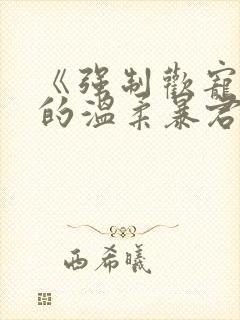 《强制歡寵
的温柔暴君
西希曦